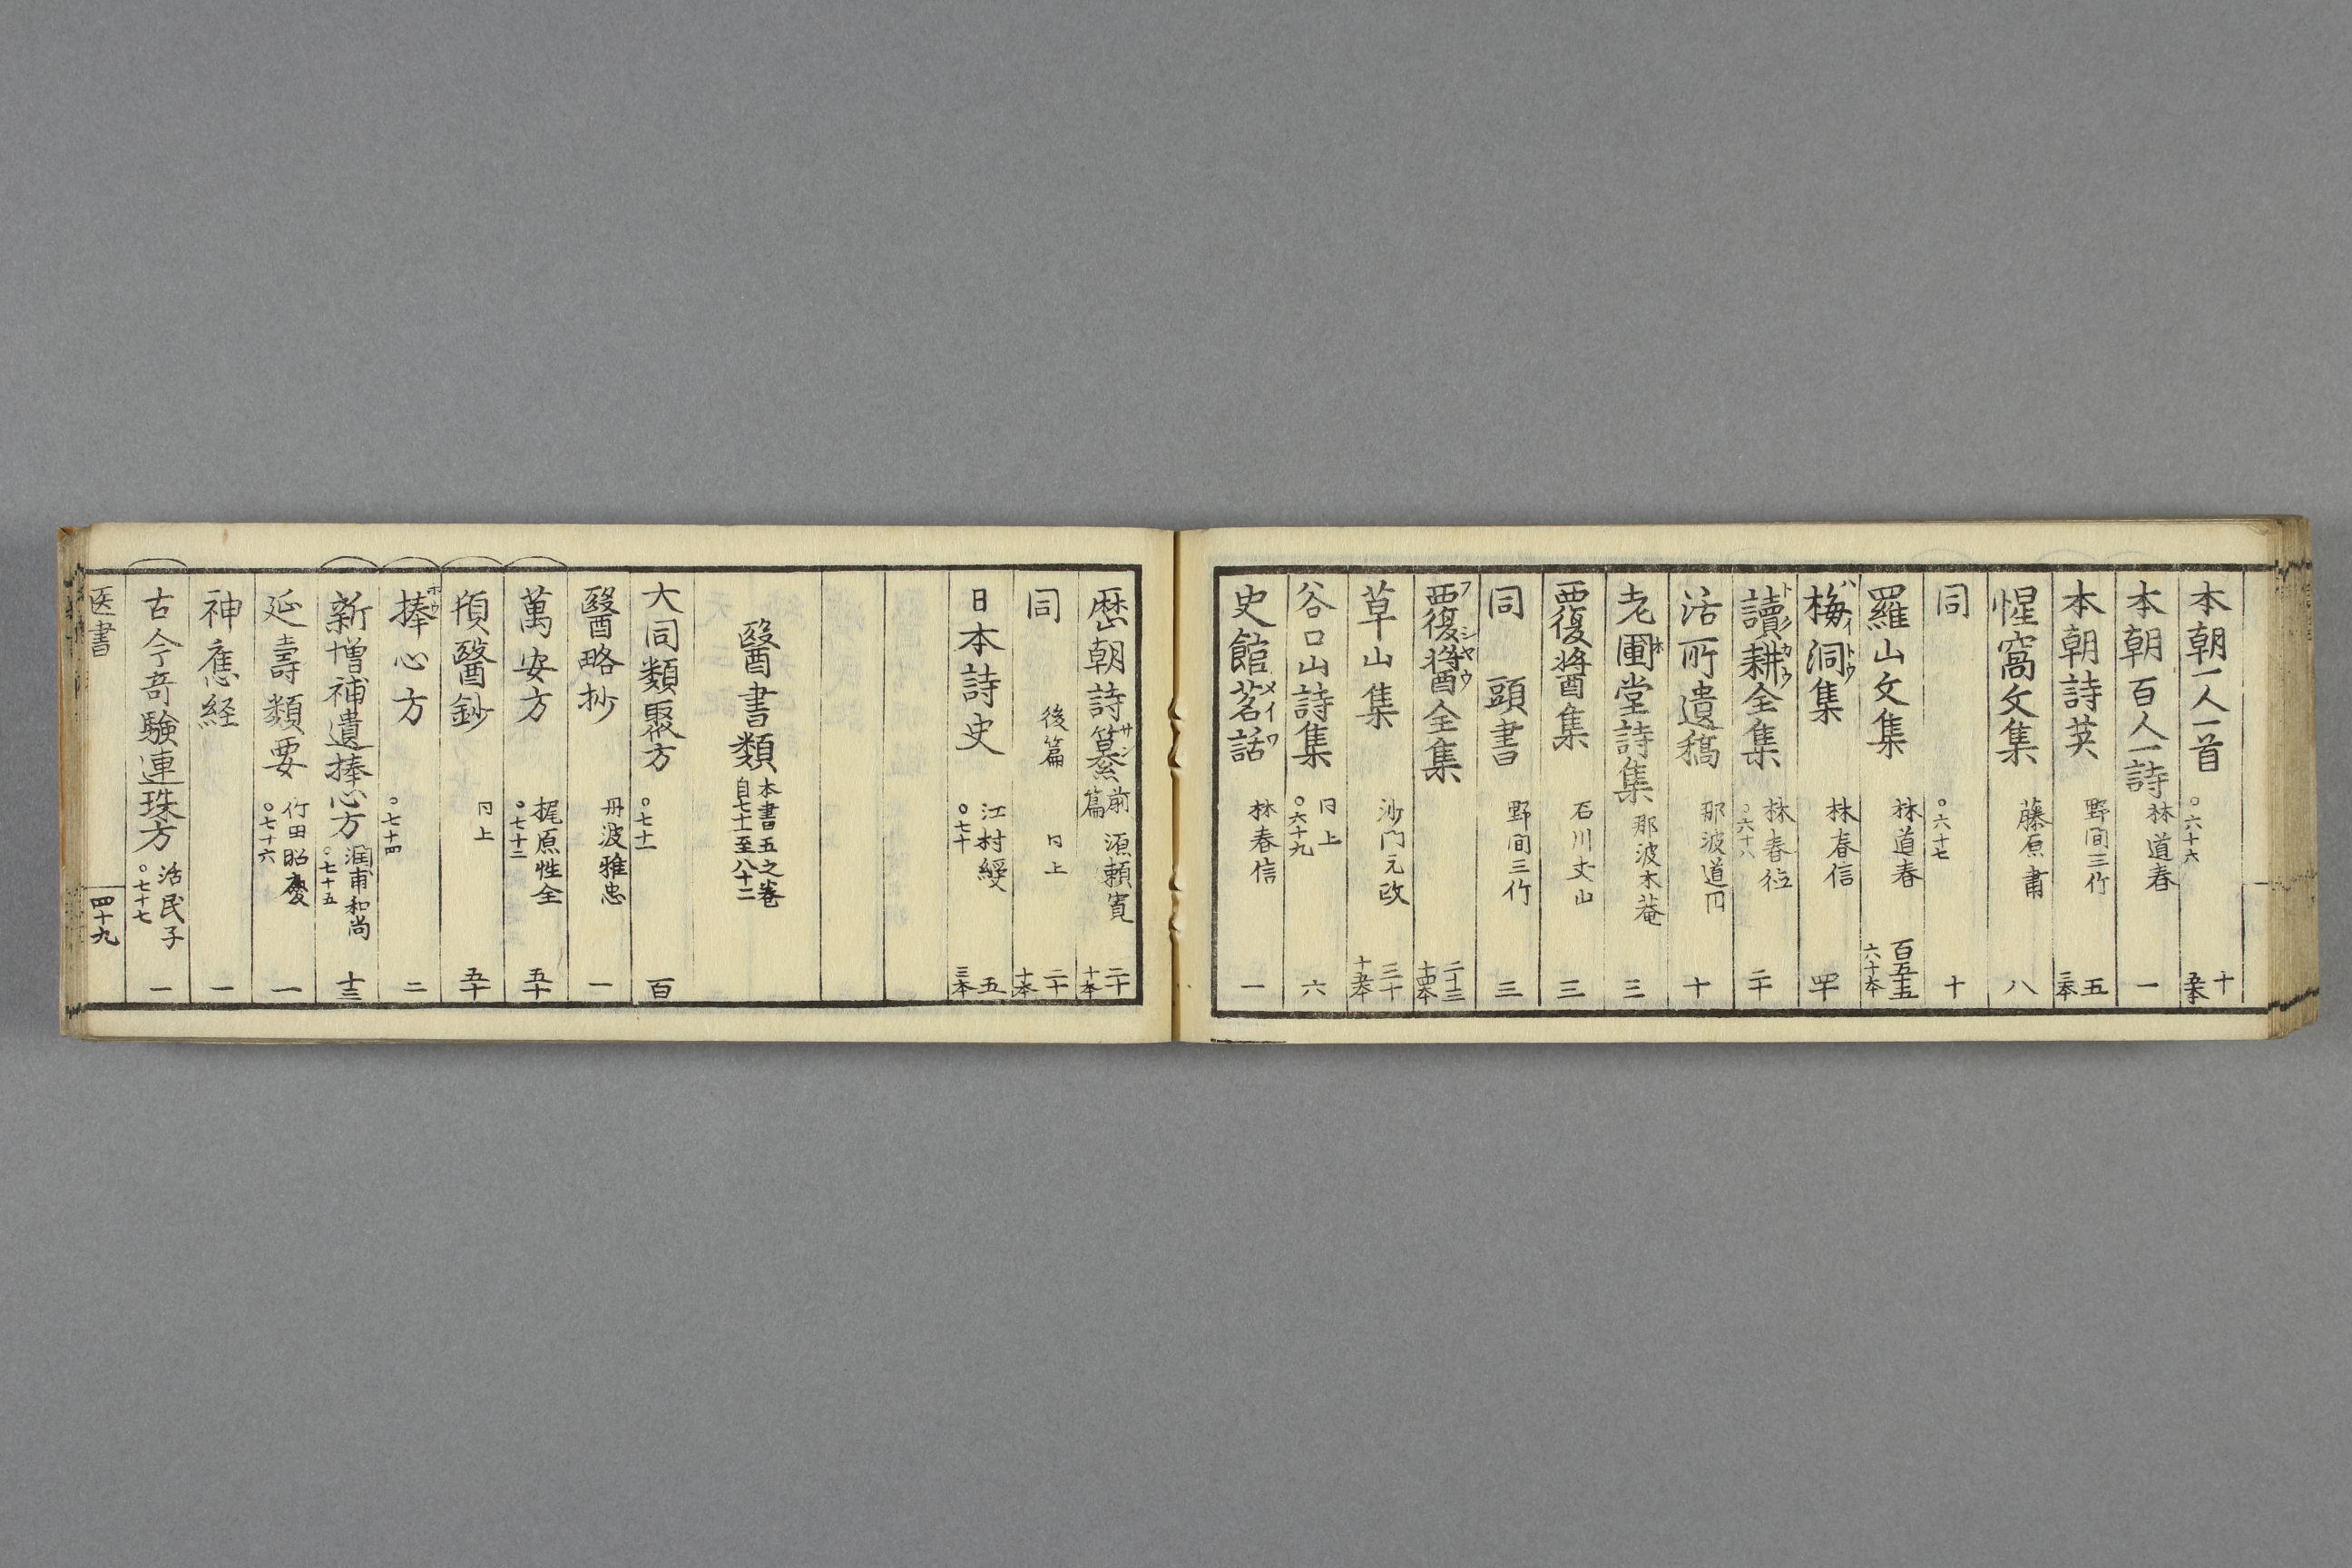 本朝一人一首 ○六十六 十 五本
本朝百人一詩 林道春 一
本朝詩英 野間三竹 五 三本
惺窩文集 藤原肅 八
同 ○六十七 十
羅山文集 林道春 百五十五 六十本
梅洞集 ハイトウ 林春信 四十
讀耕全集 トクカウ 林春徳 ○六十八 二十
活所遺稿 那波道円 十
老圃堂詩集 ホ 那波木菴 三
覆醤集 石川丈山 三
同 頭書 野間三竹 三
覆醤全集 フシヤウ 二十三 十四本
草山集 沙門元政 三十 十五本
谷口山詩集 同上 ○六十九 六
史館茗話 メイワ 林春信 一
歴朝詩纂 サン 前篇 源頼寛 二十 十本
同 後篇 同上 二十 十本
日本詩史 江村綬 ○七十 五 三本
醫書類 本書五之巻 自七十一至八十二
大同類聚方 ○七十一 百
醫略抄 丹波雅忠 一
萬安方 梶原性全 ○七十二 五十
頓醫鈔 同上 五十
捧心方 ホウ ○七十四 二
新増補遺捧心方 潤甫和尚 ○七十五 十三
延壽類要 竹田昭慶 ○七十六 一
神應経 一
古今奇験連珠方 活民子 ○七十七 一
医書 四十九